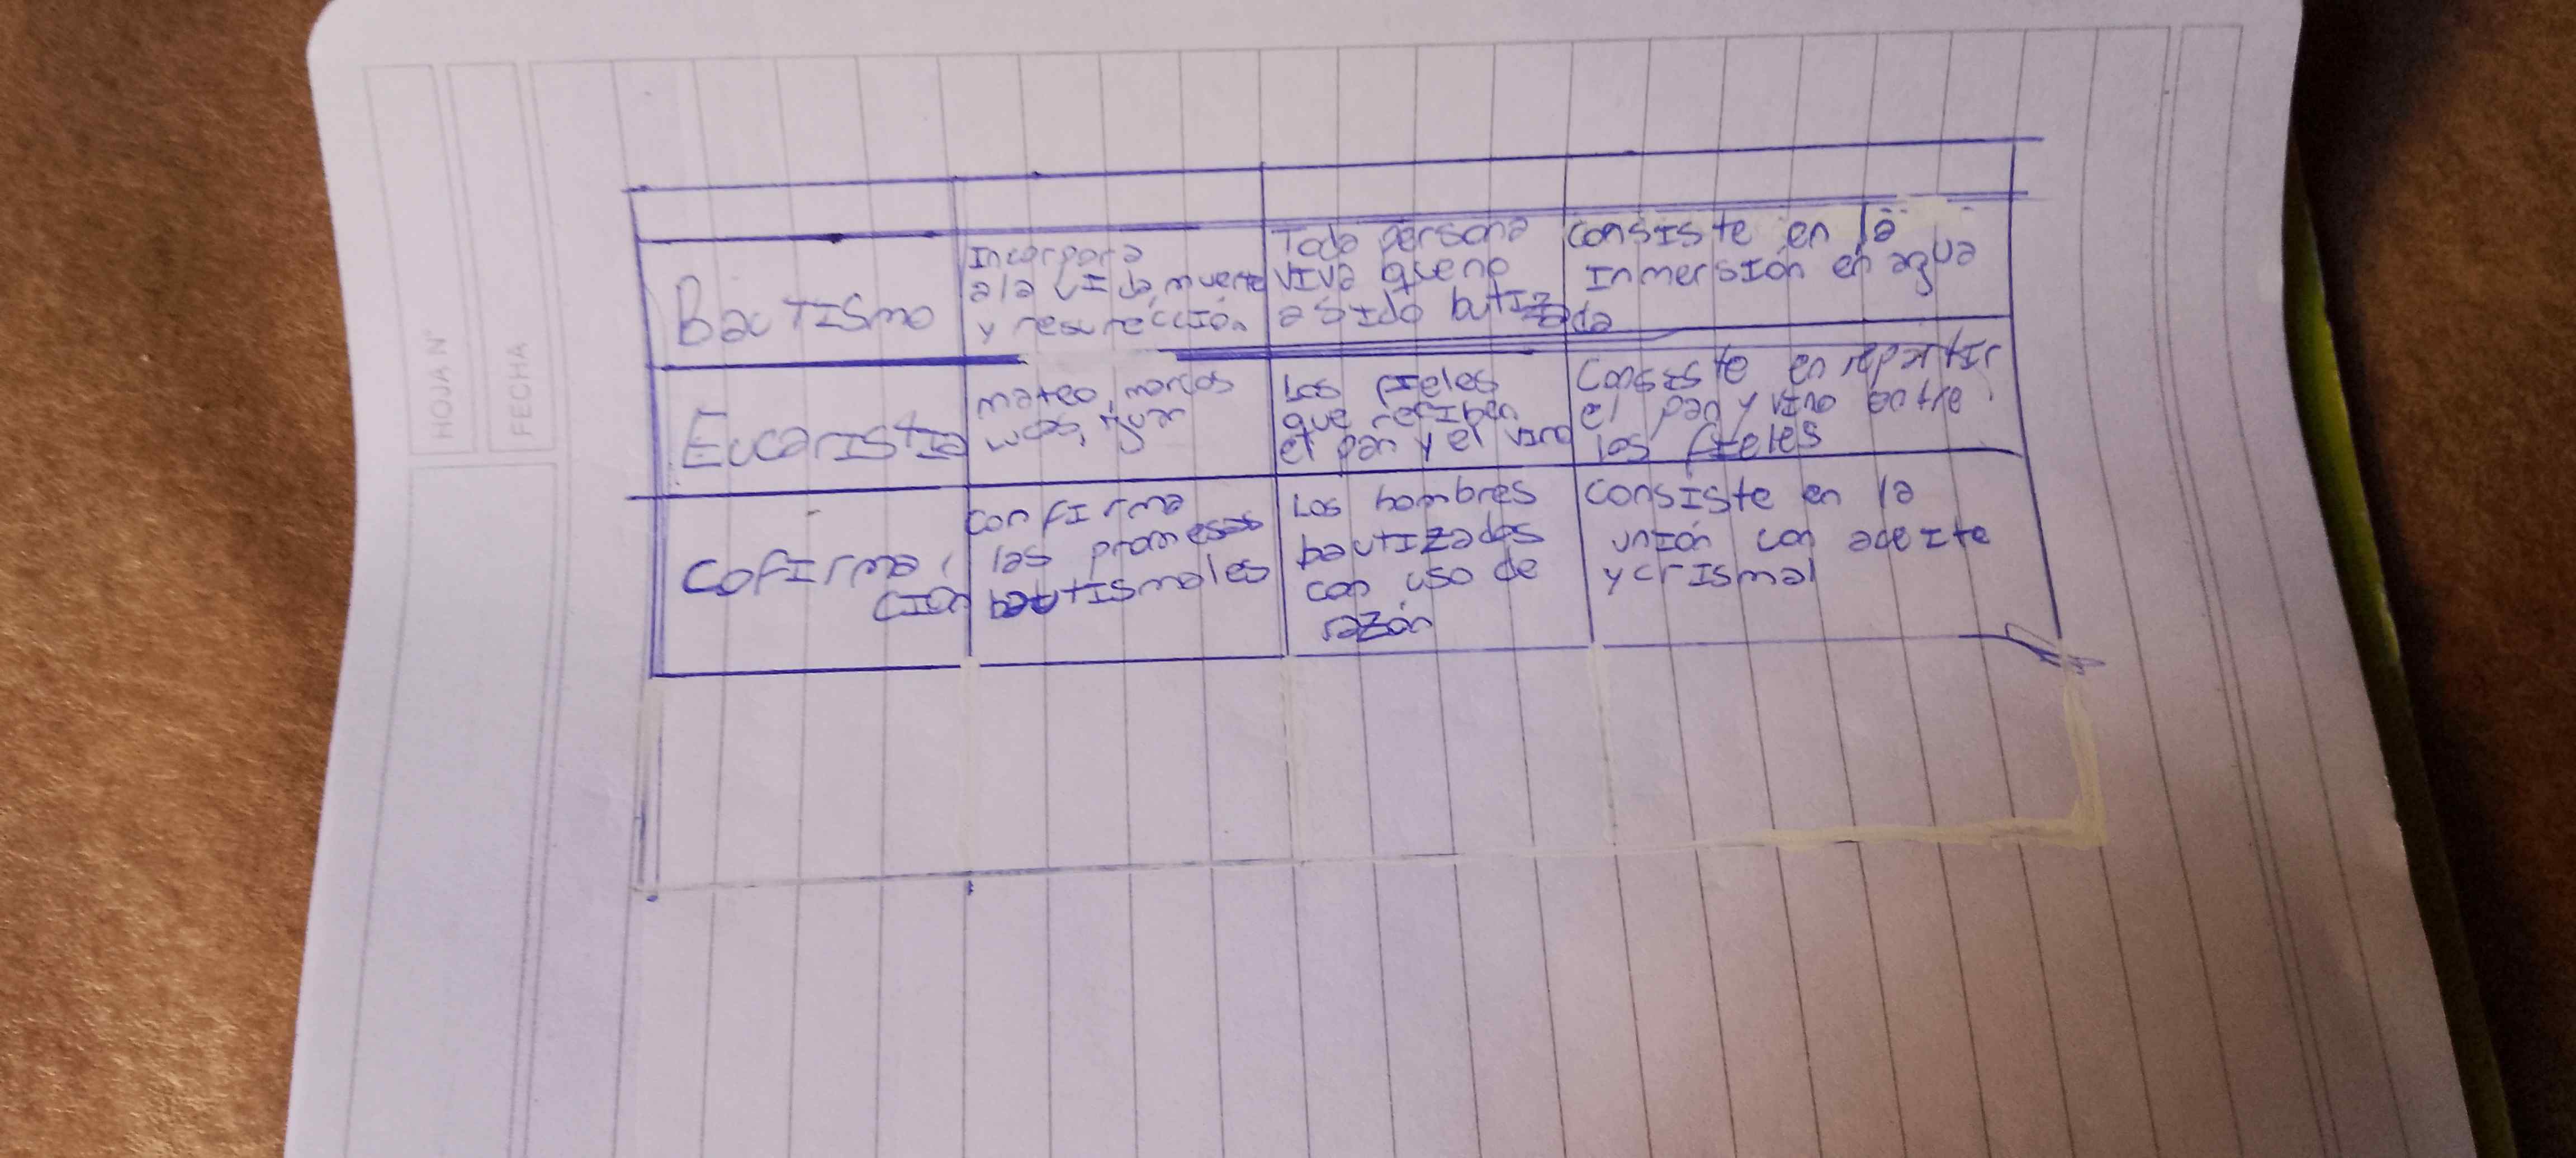 HOJA N°
FECHA
Bautismo
Incorpora
a la vida, muerte
y resurrección
Toda persona
viva que no
a sido butizada
consiste en la
Inmersión en agua
Eucaristia
mateo, marcos
Los fieles
que reciben
el pan y el vino
Consiste en repartir
el pan y vino entre
los fieles
Cofirma
ción
confirma
las promesas
bautismales
Los hombres
bautizados
con uso de
razón
consiste en la
unión con aceite
y crismal